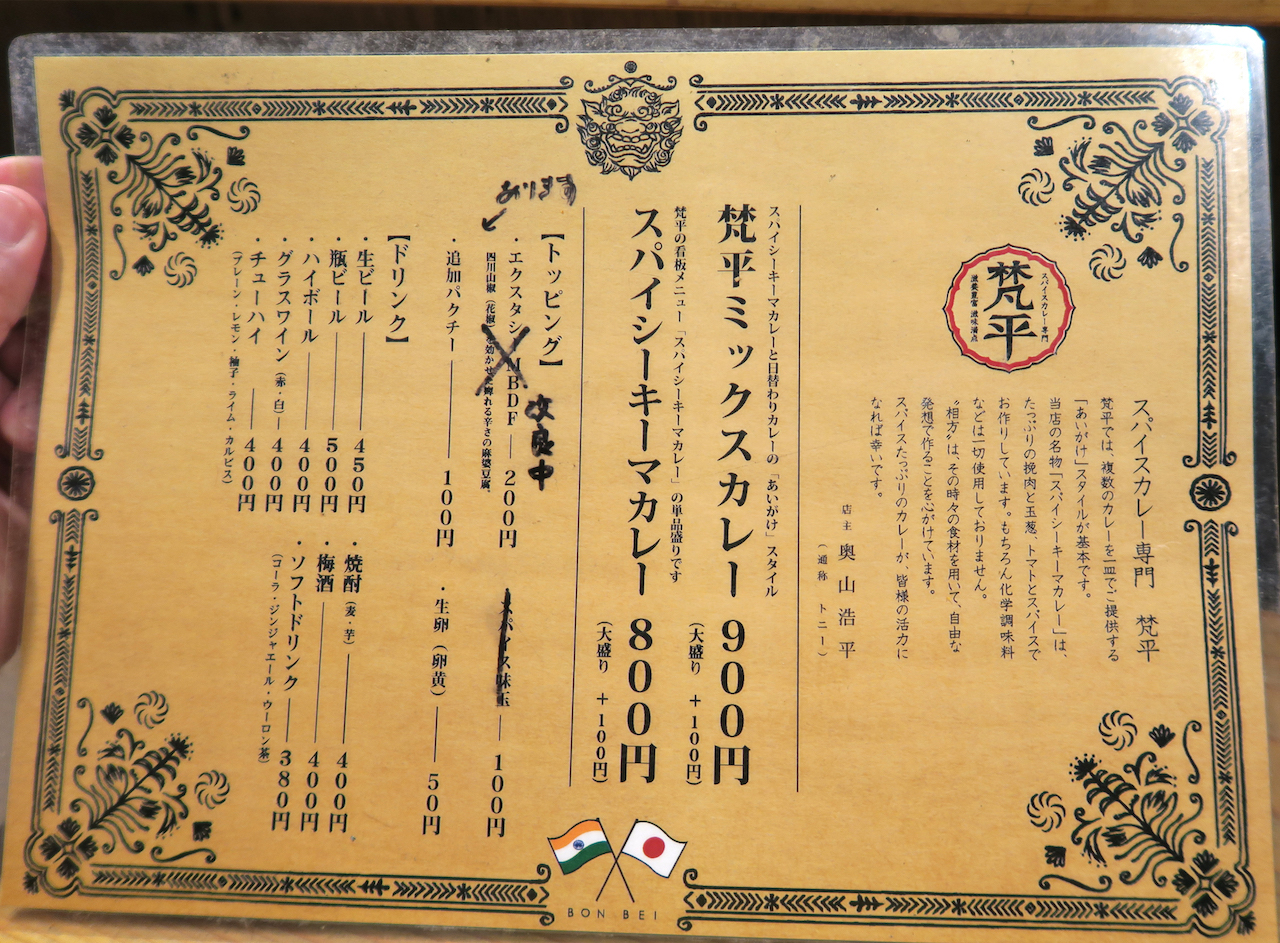 スパイスカレー専門
滋養豊富 滋味満点
梵平
スパイスカレー専門 梵平
梵平では、複数のカレーを一皿でご提供する
「あいがけ」スタイルが基本です。
当店の名物「スパイシーキーマカレー」は、
たっぷりの挽肉と玉葱、トマトとスパイスで
お作りしています。もちろん化学調味料
などは一切使用しておりません。
"相方"は、その時々の食材を用いて、自由な
発想で作ることを心がけています。
スパイスたっぷりのカレーが、皆様の活力に
なれば幸いです。
店主 奥山浩平
(通称 トニー)
スパイシーキーマカレーと日替わりカレーの「あいがけ」スタイル
梵平ミックスカレー 900円
(大盛り +100円)
梵平の看板メニュー「スパイシーキーマカレー」の単品盛りです
スパイシーキーマカレー 800円
(大盛り +100円)
【トッピング】
改良中
・エクスタシーMBDF 200円
あります
四川山椒(花椒)を効かせた痺れる辛さの麻婆豆腐。
スパイス味玉 100円
・追加パクチー 100円
・生卵(卵黄) 50円
【ドリンク】
・生ビール 450円
・瓶ビール 500円
・ハイボール 400円
・グラスワイン(赤・白) 400円
・チューハイ 400円
(プレーン・レモン・柚子・ライム・カルピス)
・焼酎(麦・芋) 400円
・梅酒 400円
・ソフトドリンク 380円
(コーラ・ジンジャエール・ウーロン茶)
BON BEI